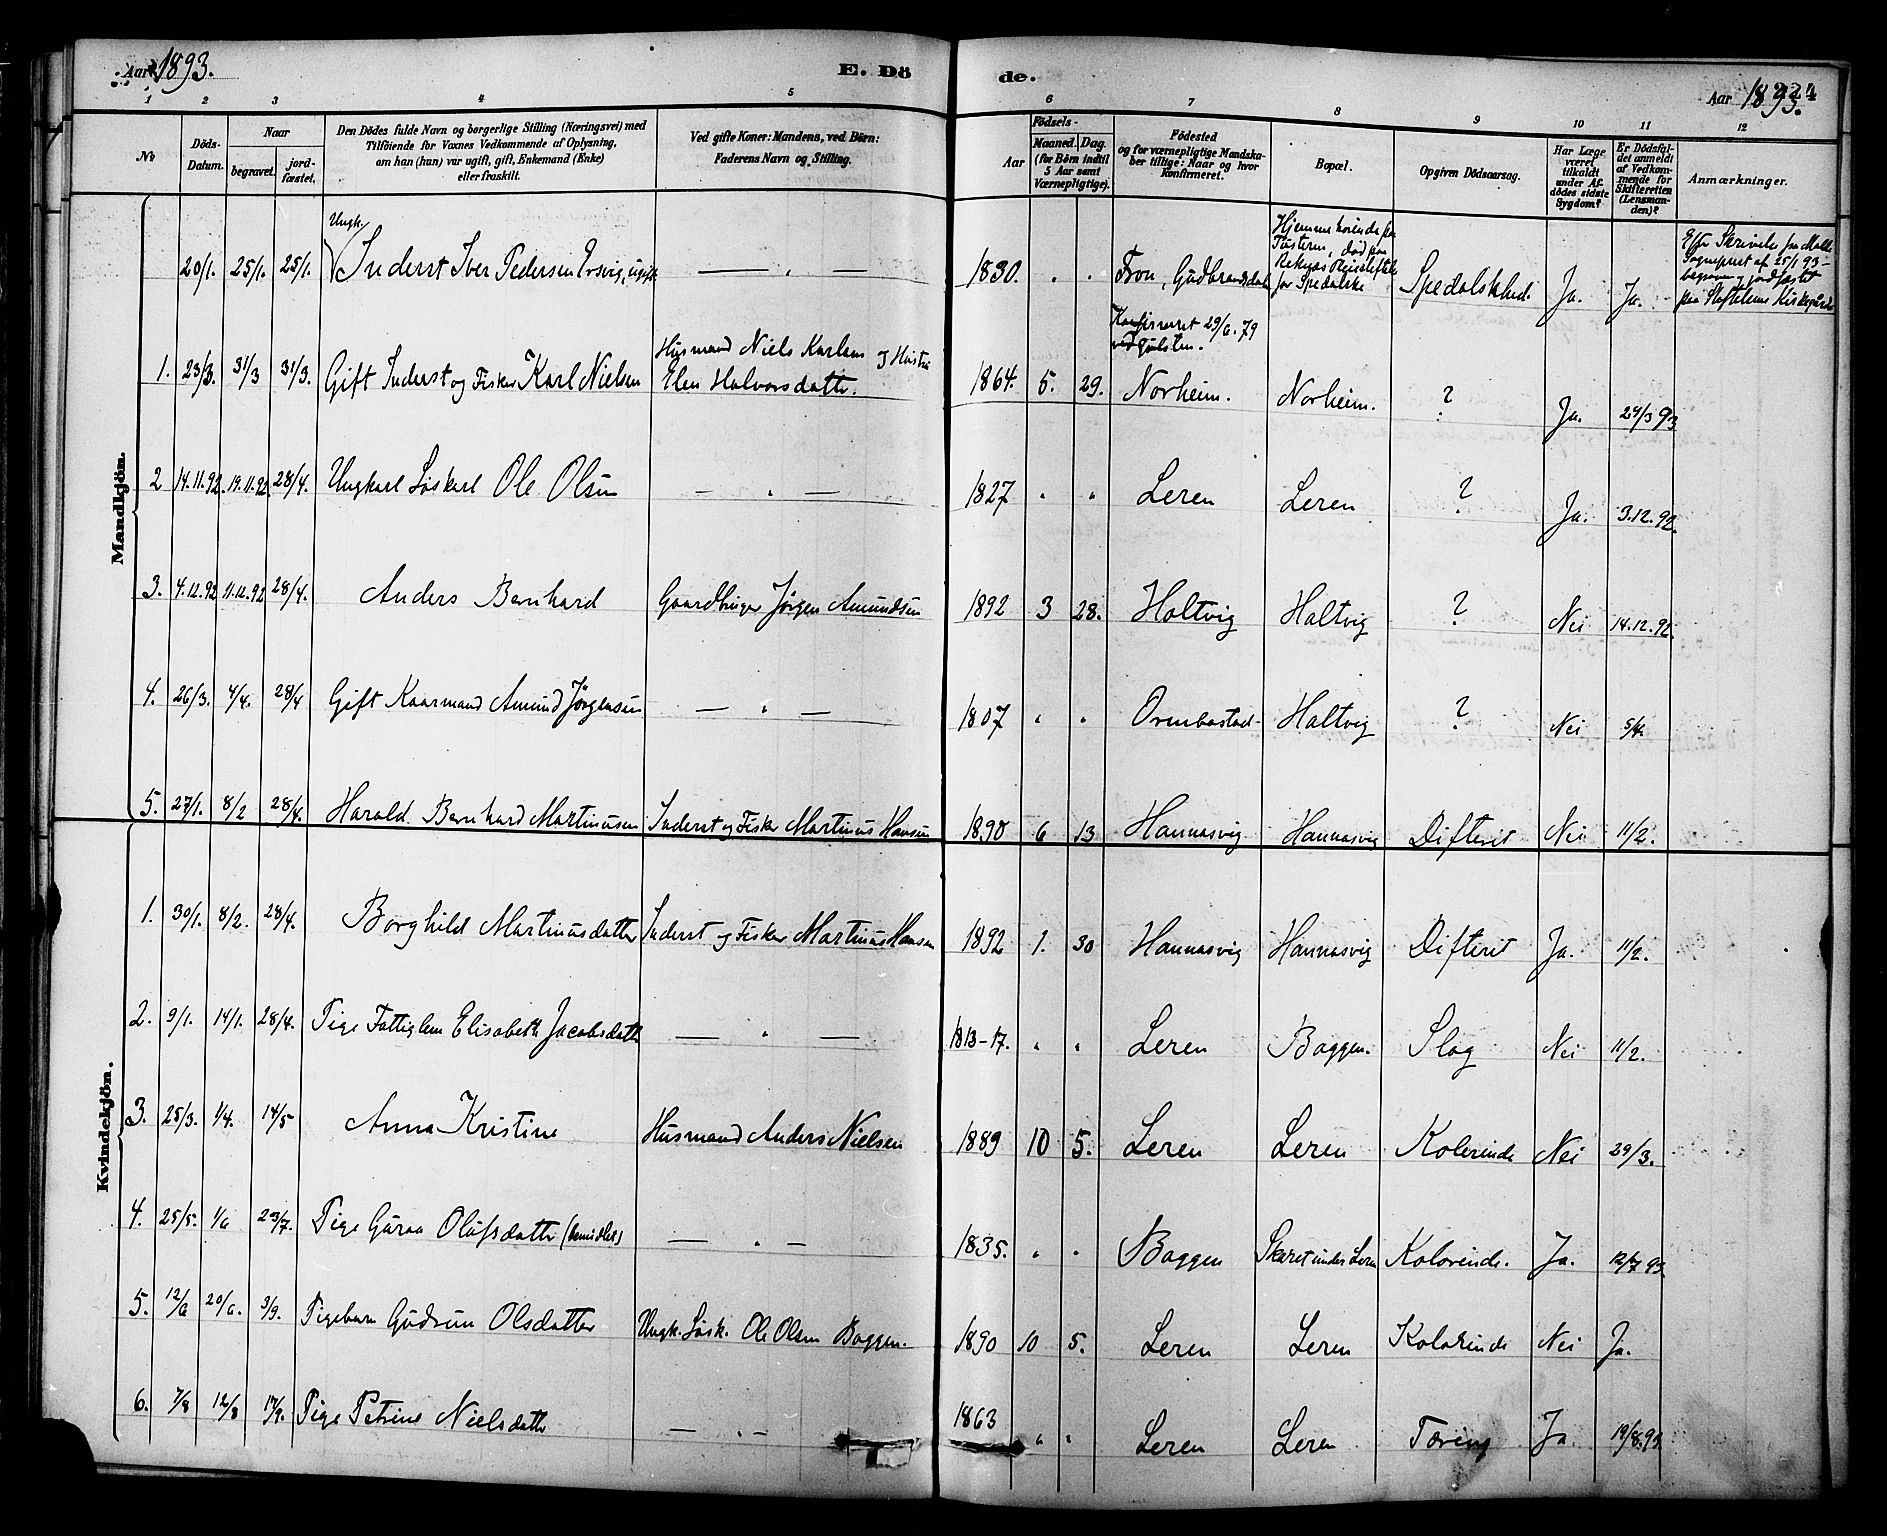 Aar 1893.
E. Dö
de.
Aar 1893.
224
1 2 3 4 5 6 7 8 9 10 11 12
No
Döds-Datum.
Naar
begravet.
jord-fæstet.
Den Dödes fulde Navn og borgerlige Stilling (Næringsvei) med
Tilföiende for Voxnes Vedkommende af Oplysning,
om han (hun) var ugift, gift, Enkemand (Enke)
eller fraskilt.
Ved gifte Koner: Mandens, ved Börn:
Faderens Navn og Stilling.
Födsels-
Aar
Maaned. Dag.
(for Börn indtil
5 Aar samt
Værnepligtige).
Födested
og for værnepligtige Mandska-
ber tillige: Naar og hvor
konfirmeret.
Bopæl.
Opgiven Dödsaarsag.
Har Læge
været
tilkaldt
under Af-
dödes sidste
Sygdom?
Er Dödsfal-
det anmeldt
af Vedkom-
mende for
Skifteretten
(Lensman-
den)?
Anmærkninger.
Mandkjön.
Ungk.
20/1. 25/1. 25/1. Inderst Iver Pedersen ugift — " — 1830. " " Fron, Gudbrandsdalen Spedalskhed. Ja. Ja.
Hjemmehörende paa
Tusteren, död paa
Reknæs Pleiestiftelse
for Spedalske
Efter Skrivelse fra Molde
Sogneprest af 25/1 93 -
begraven og jordfæstet
paa Stiftelsens Kirkegaard
Konfirmeret 29/6.79
Husmand Niels Karlsen og Hustru
1. 23/3. 31/3 31/3. Gift Inderst og Fisker Karl Nielsen Elen Halvorsdatter. 1864. 5. 29. Norheim. Norheim. ? Ja. 24/3 93
2 14.11.92. 19.11.92. 28/4. Ungkarl Löskarl Ole Olsen — " — 1827 " " Leren Leren ? Ja. 3.12.92.
3. 4.12.92 11.12.92 28/4. Anders Bernhard Gaardbruger Jörgen Amundsen 1892 3 28. Holtvig Holtvig ? Nei 14.12.92.
4. 26/3. 4/4. 28/4 Gift Kaarmand Amund Jörgensen — " — 1807 " " Holtvig ? Nei 5/4.
5. 27/1. 8/2 28/4. Harald Bernhard Martinusen Inderst og Fisker Martinus Hansen 1890 6 13 Hannasvig Hannasvig Difterit Nei 11/2.
Kvindekjön.
1. 30/1. 8/2. 28/4. Borghild Martinusdatter Inderst og Fisker Martinus Hansen 1892 1. 30 Hannasvig Hannasvig Difterit Ja. 11/2.
2. 9/1. 14/1. 28/4. Pige Fattiglem Elisabeth Jacobsdatter — " — 1813-17. " " Leren Baggen. Slag Nei 11/2.
3. 25/3. 1/4. 14/5 Anna Kristine Husmand Anders Nielsen 1889 10 5. Leren Leren Kolerine Nei 29/3.
4. 25/5. 1/6 23/7. Pige Guraa Olufsdatter — " — 1835. " " Baggen Skaret under Leren Kolerine. Ja. 12/7 93.
5. 12/6 20/6. 3/9. Pigebarn Gudrun Olsdatter Ungk. Lösk. Ole Olsen Baggen. 1890 10 5. Leren Leren Kolerine Nei Ja.
6. 7/8 12/8 17/9. Pige Petrine Nielsdatter — " — 1863 " " Leren Leren Tæring Ja 19/8.93.